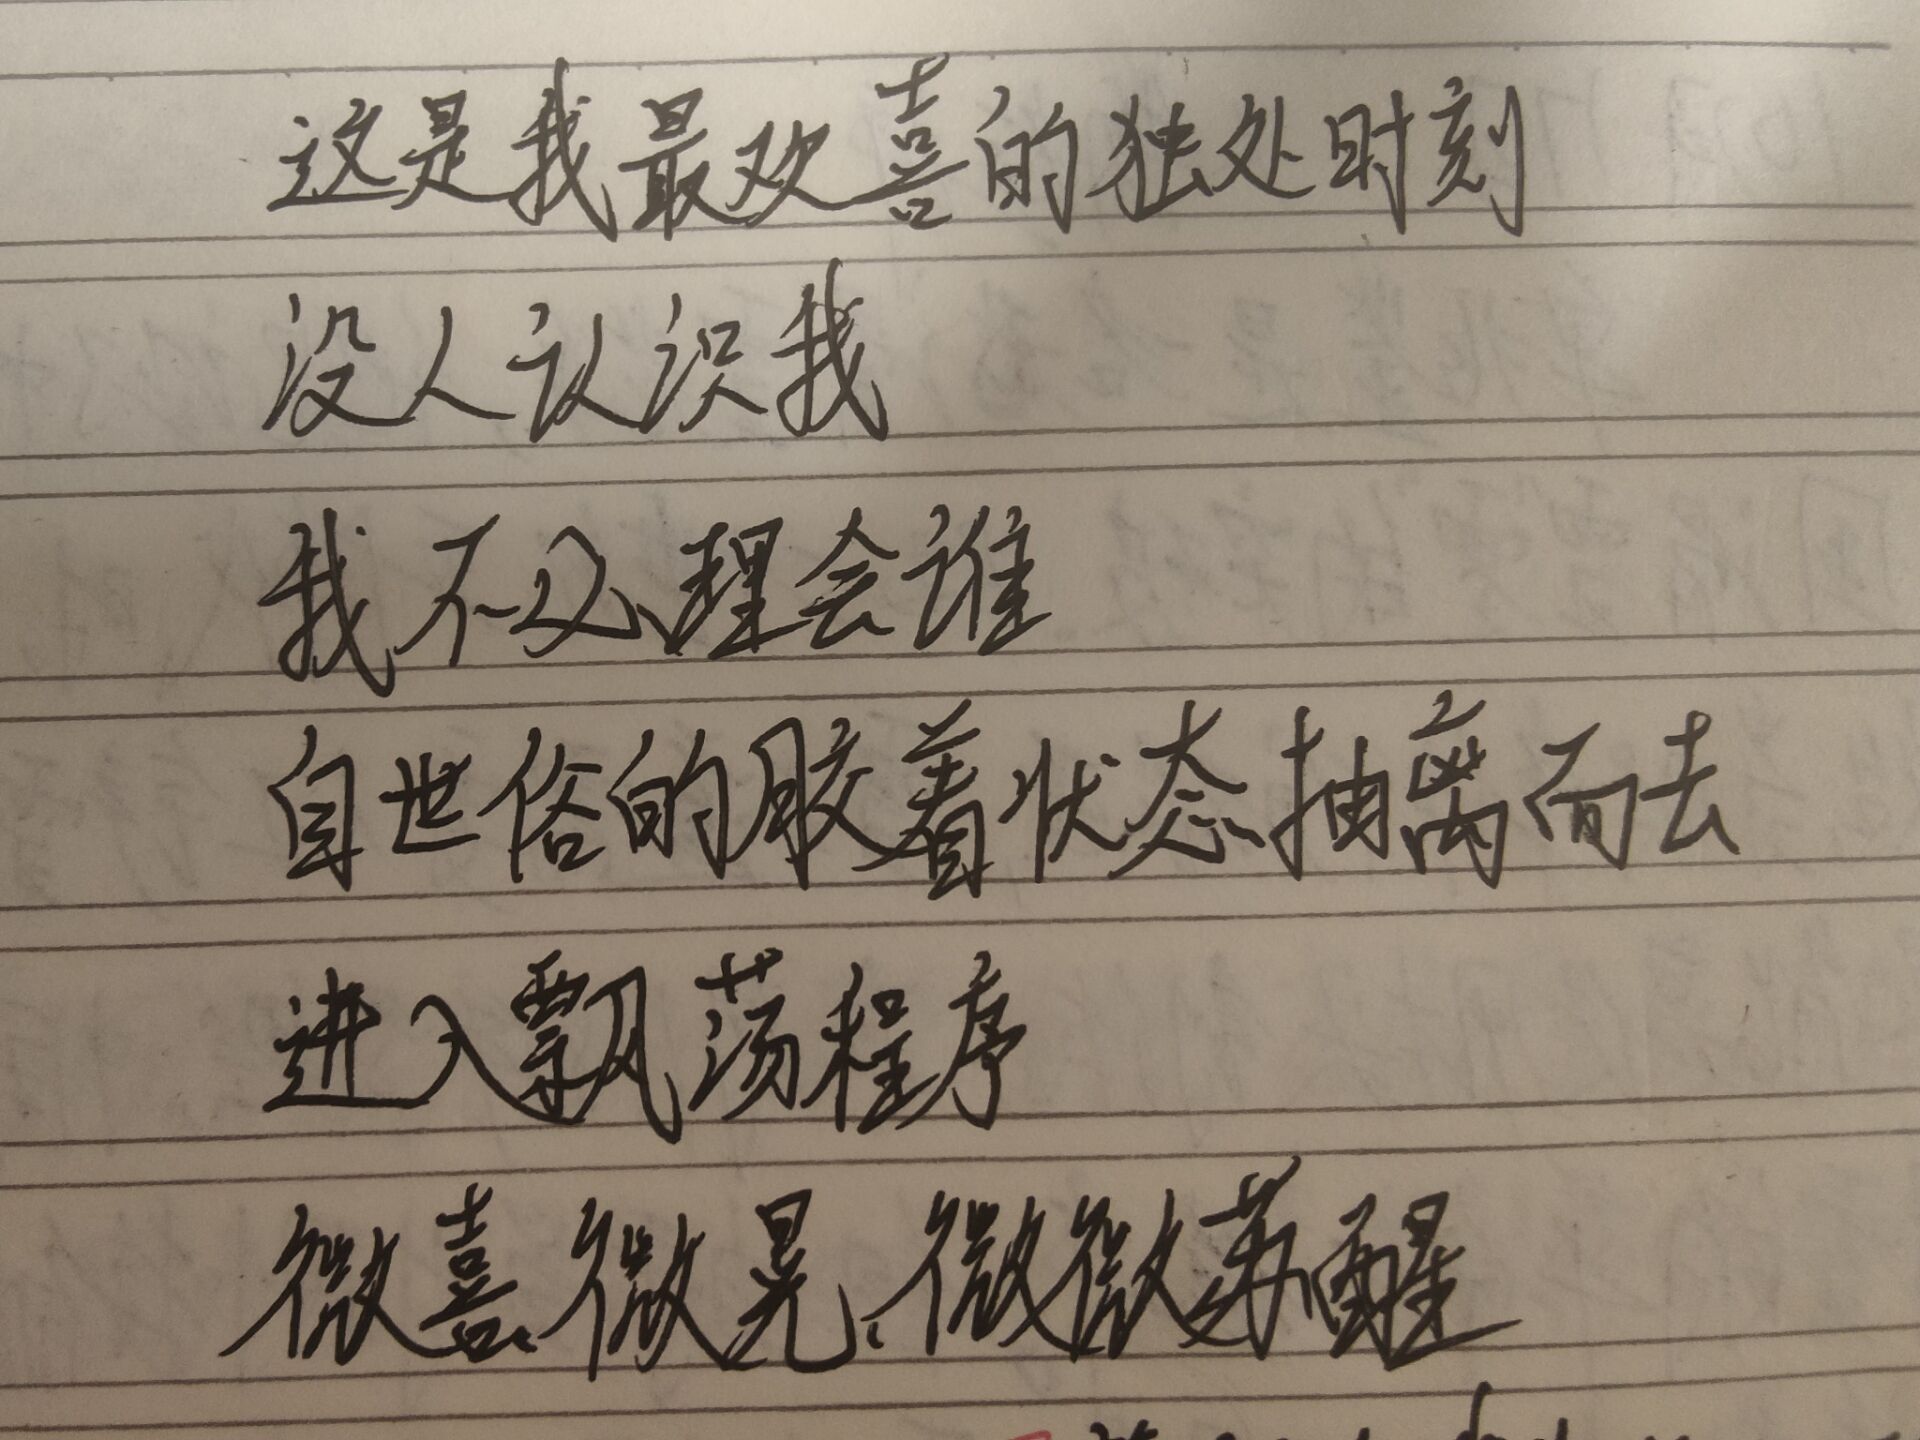 这是我最欢喜的独处时刻
没人认识我
我不必理会谁
自世俗的胶着状态抽离而去
进入飘荡程序
微喜、微晃、微微苏醒